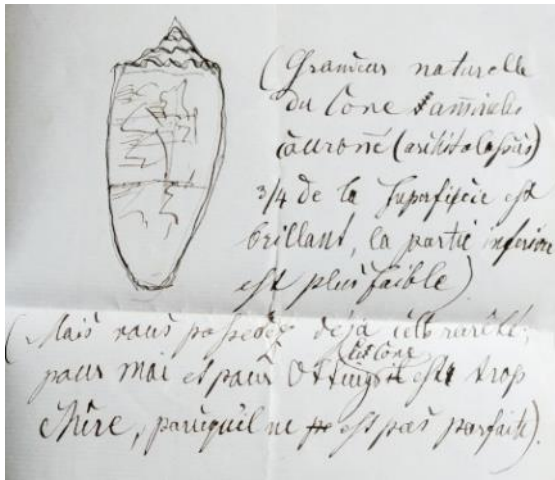 (Grandeur naturelle
du Cone
couronné (
3/4 de la Superficie est
brillant, la partie inferieure
est plus faible)
(Mais vous possedez déja cette rareté;
pour moi et pour est trop
Chère, parcequ'il ne est pas parfaite).